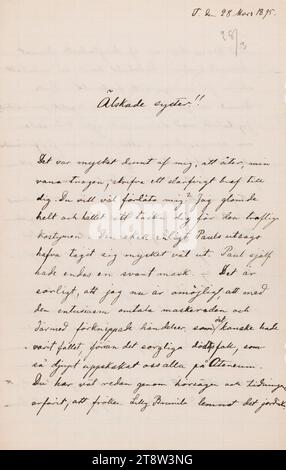 T. den 28 Mars 1895.
28/3
Älskade syster!!
Det var mycket dumt af mig, att åter, min
vana trogen, skrifva ett slarfvigt bref till
dig. Du vill väl förlåta mig? Jag glömde
helt och hållet att tacka dig för den
kostymen den skall enligt Pauls utsago
hafva tagit sig mycket väl ut. Paul sjelf
hade endast en svart mask. – Det är
sorgligt, att jag nu är omöjlig att med
den entusiasm omtala maskeraden och
därmed förknippade händelser, som det kanske hade
varit fallet, förän det sorgliga dödsfall, som
så djupt uppskakat oss alla på Ateneum.
Du har väl redan genom hörsägen och tidningen
erfarit, att fröken Lilly lemnat det jordiska
alamy
Image ID: 2T8W3NG
www.alamy.com